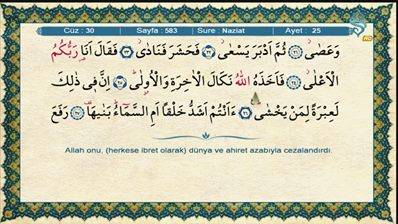 Cüz : 30 Sayfa : 583 Sure : Naziat Ayet : 25
وَعَصٰىۘ ﴿٢١﴾ ثُمَّ اَدْبَرَ يَسْعٰىۘ ﴿٢٢﴾ فَحَشَرَ فَنَادٰىۘ ﴿٢٣﴾ فَقَالَ اَنَا۬ رَبُّكُمُ
الْاَعْلٰىۘ ﴿٢٤﴾ فَاَخَذَهُ اللّٰهُ نَكَالَ الْاٰخِرَةِ وَالْاُو۫لٰىۜ ﴿٢٥﴾ اِنَّ ف۪ي ذٰلِكَ
لَعِبْرَةً لِمَنْ يَخْشٰىۜ ﴿٢٦﴾ ءَاَنْتُمْ اَشَدُّ خَلْقًا اَمِ السَّمَٓاءُۜ بَنٰيهَا۠ ﴿٢٧﴾ رَفَعَ
Allah onu, (herkese ibret olarak) dünya ve ahiret azabıyla cezalandırdı.